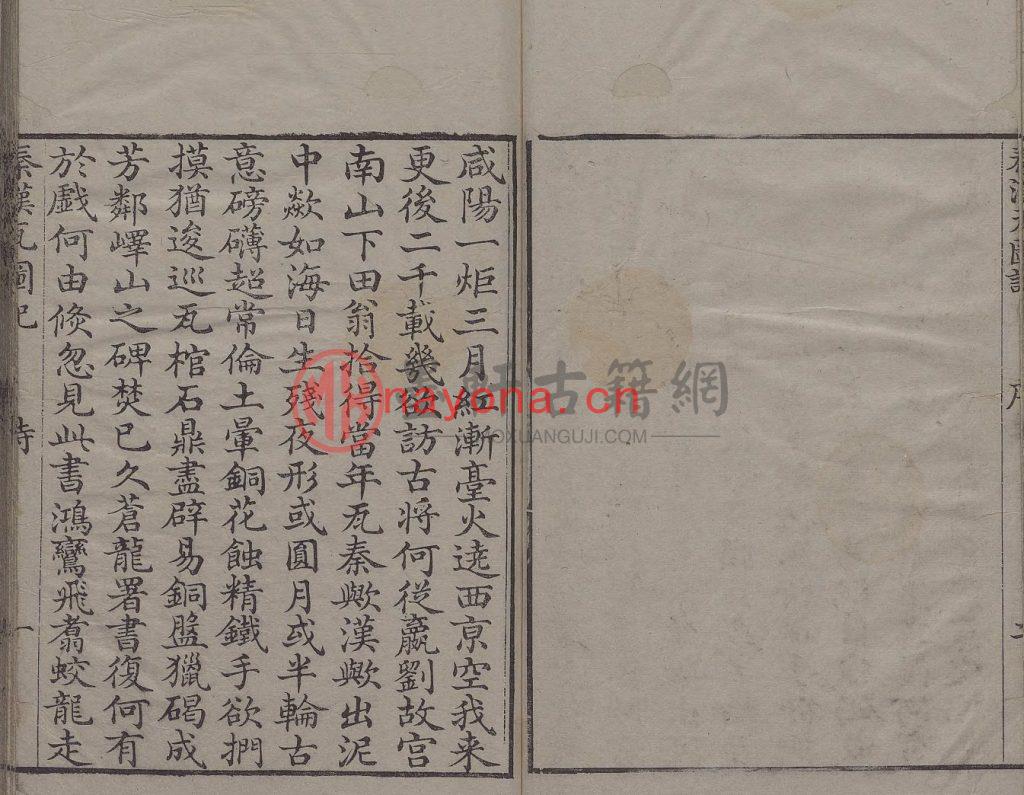 咸陽一炬三月紅漸臺火遶西京空我来
更後二千載幾欲訪古將何從嬴劉故宫
南山下田翁拾得當年瓦秦歟漢歟出泥
中歘如海日生殘夜形或圓月或半輪古
意磅礴超常倫土暈銅花蝕精鐵手欲捫
摸猶逡巡瓦棺石鼎盡辟易銅盤獵碣成
芳鄰嶧山之碑焚已久蒼龍署書復何有
於戲何由倐忽見此書鴻鸞飛翥蛟龍走
秦漢瓦圖記 詩 一
軒古籍網
nayona.cn
OXUANGUJI.COM